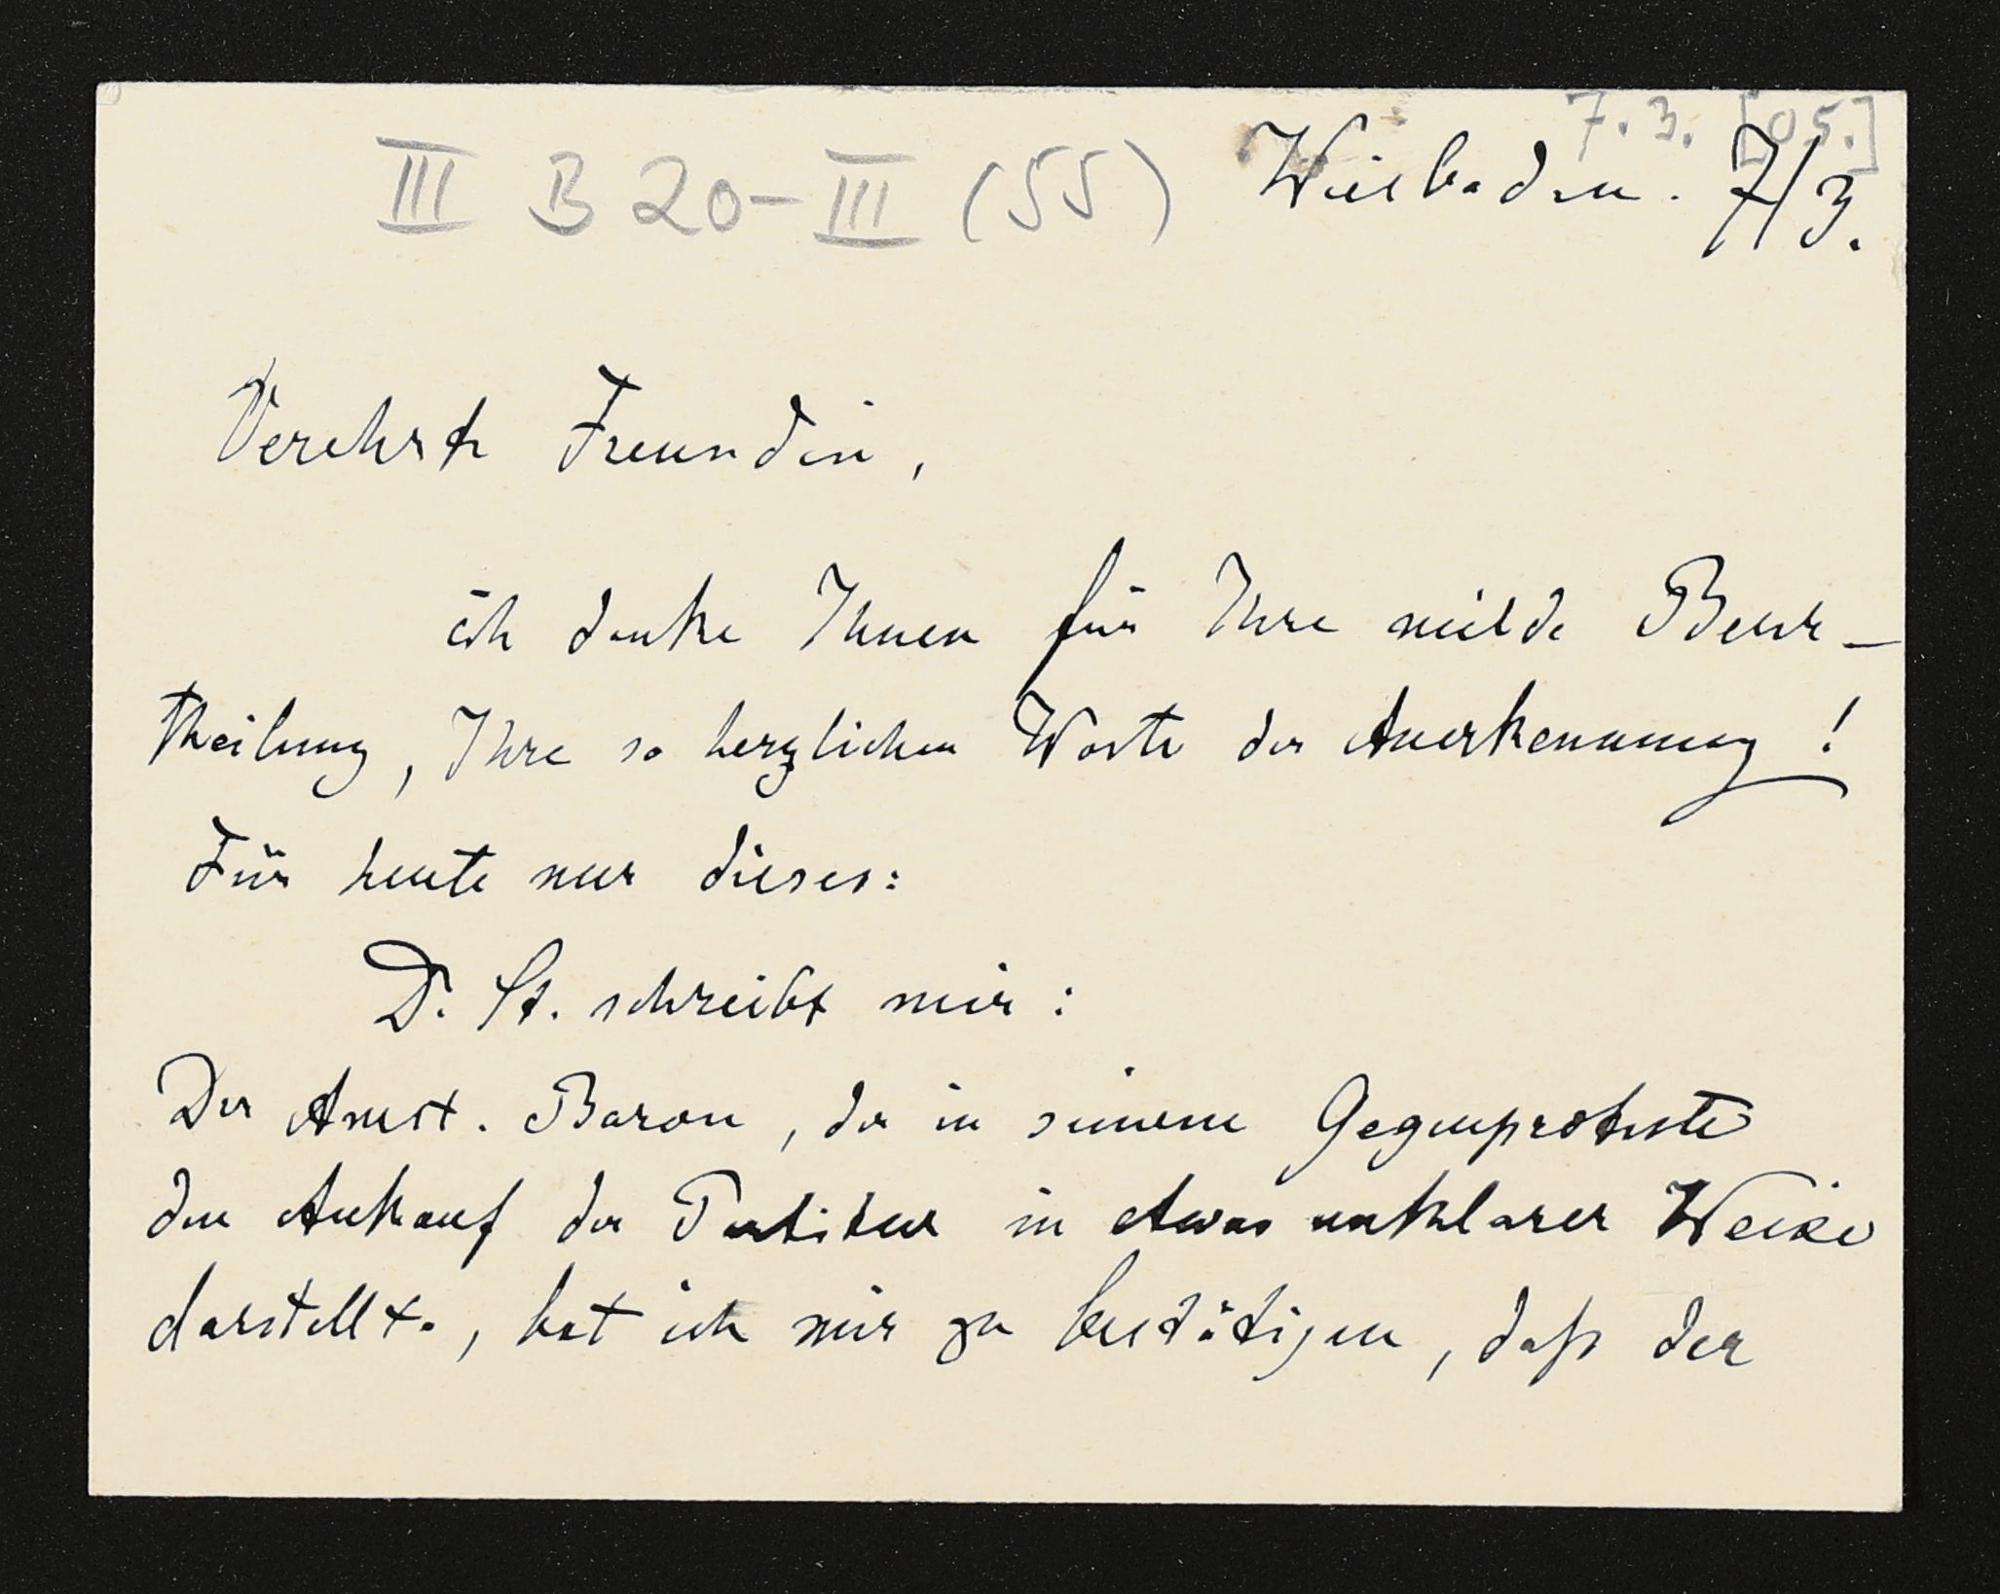 7. 3. [05.]
III B 20-III (55) Wiesbaden. 7/3.
Verehrte Freundin,
ich danke Ihnen für Ihre milde Beur-
theilung, Ihre so herzlichen Worte der Anerkennung!
Für heute nur dieses:
D. St. schreibt mir:
Der Amst. Baron, der in seinem Gegenproteste
den Ankauf der Partitur in etwas unklarer Weise
darstellte, hat ich mir zu bestätigen, daß der